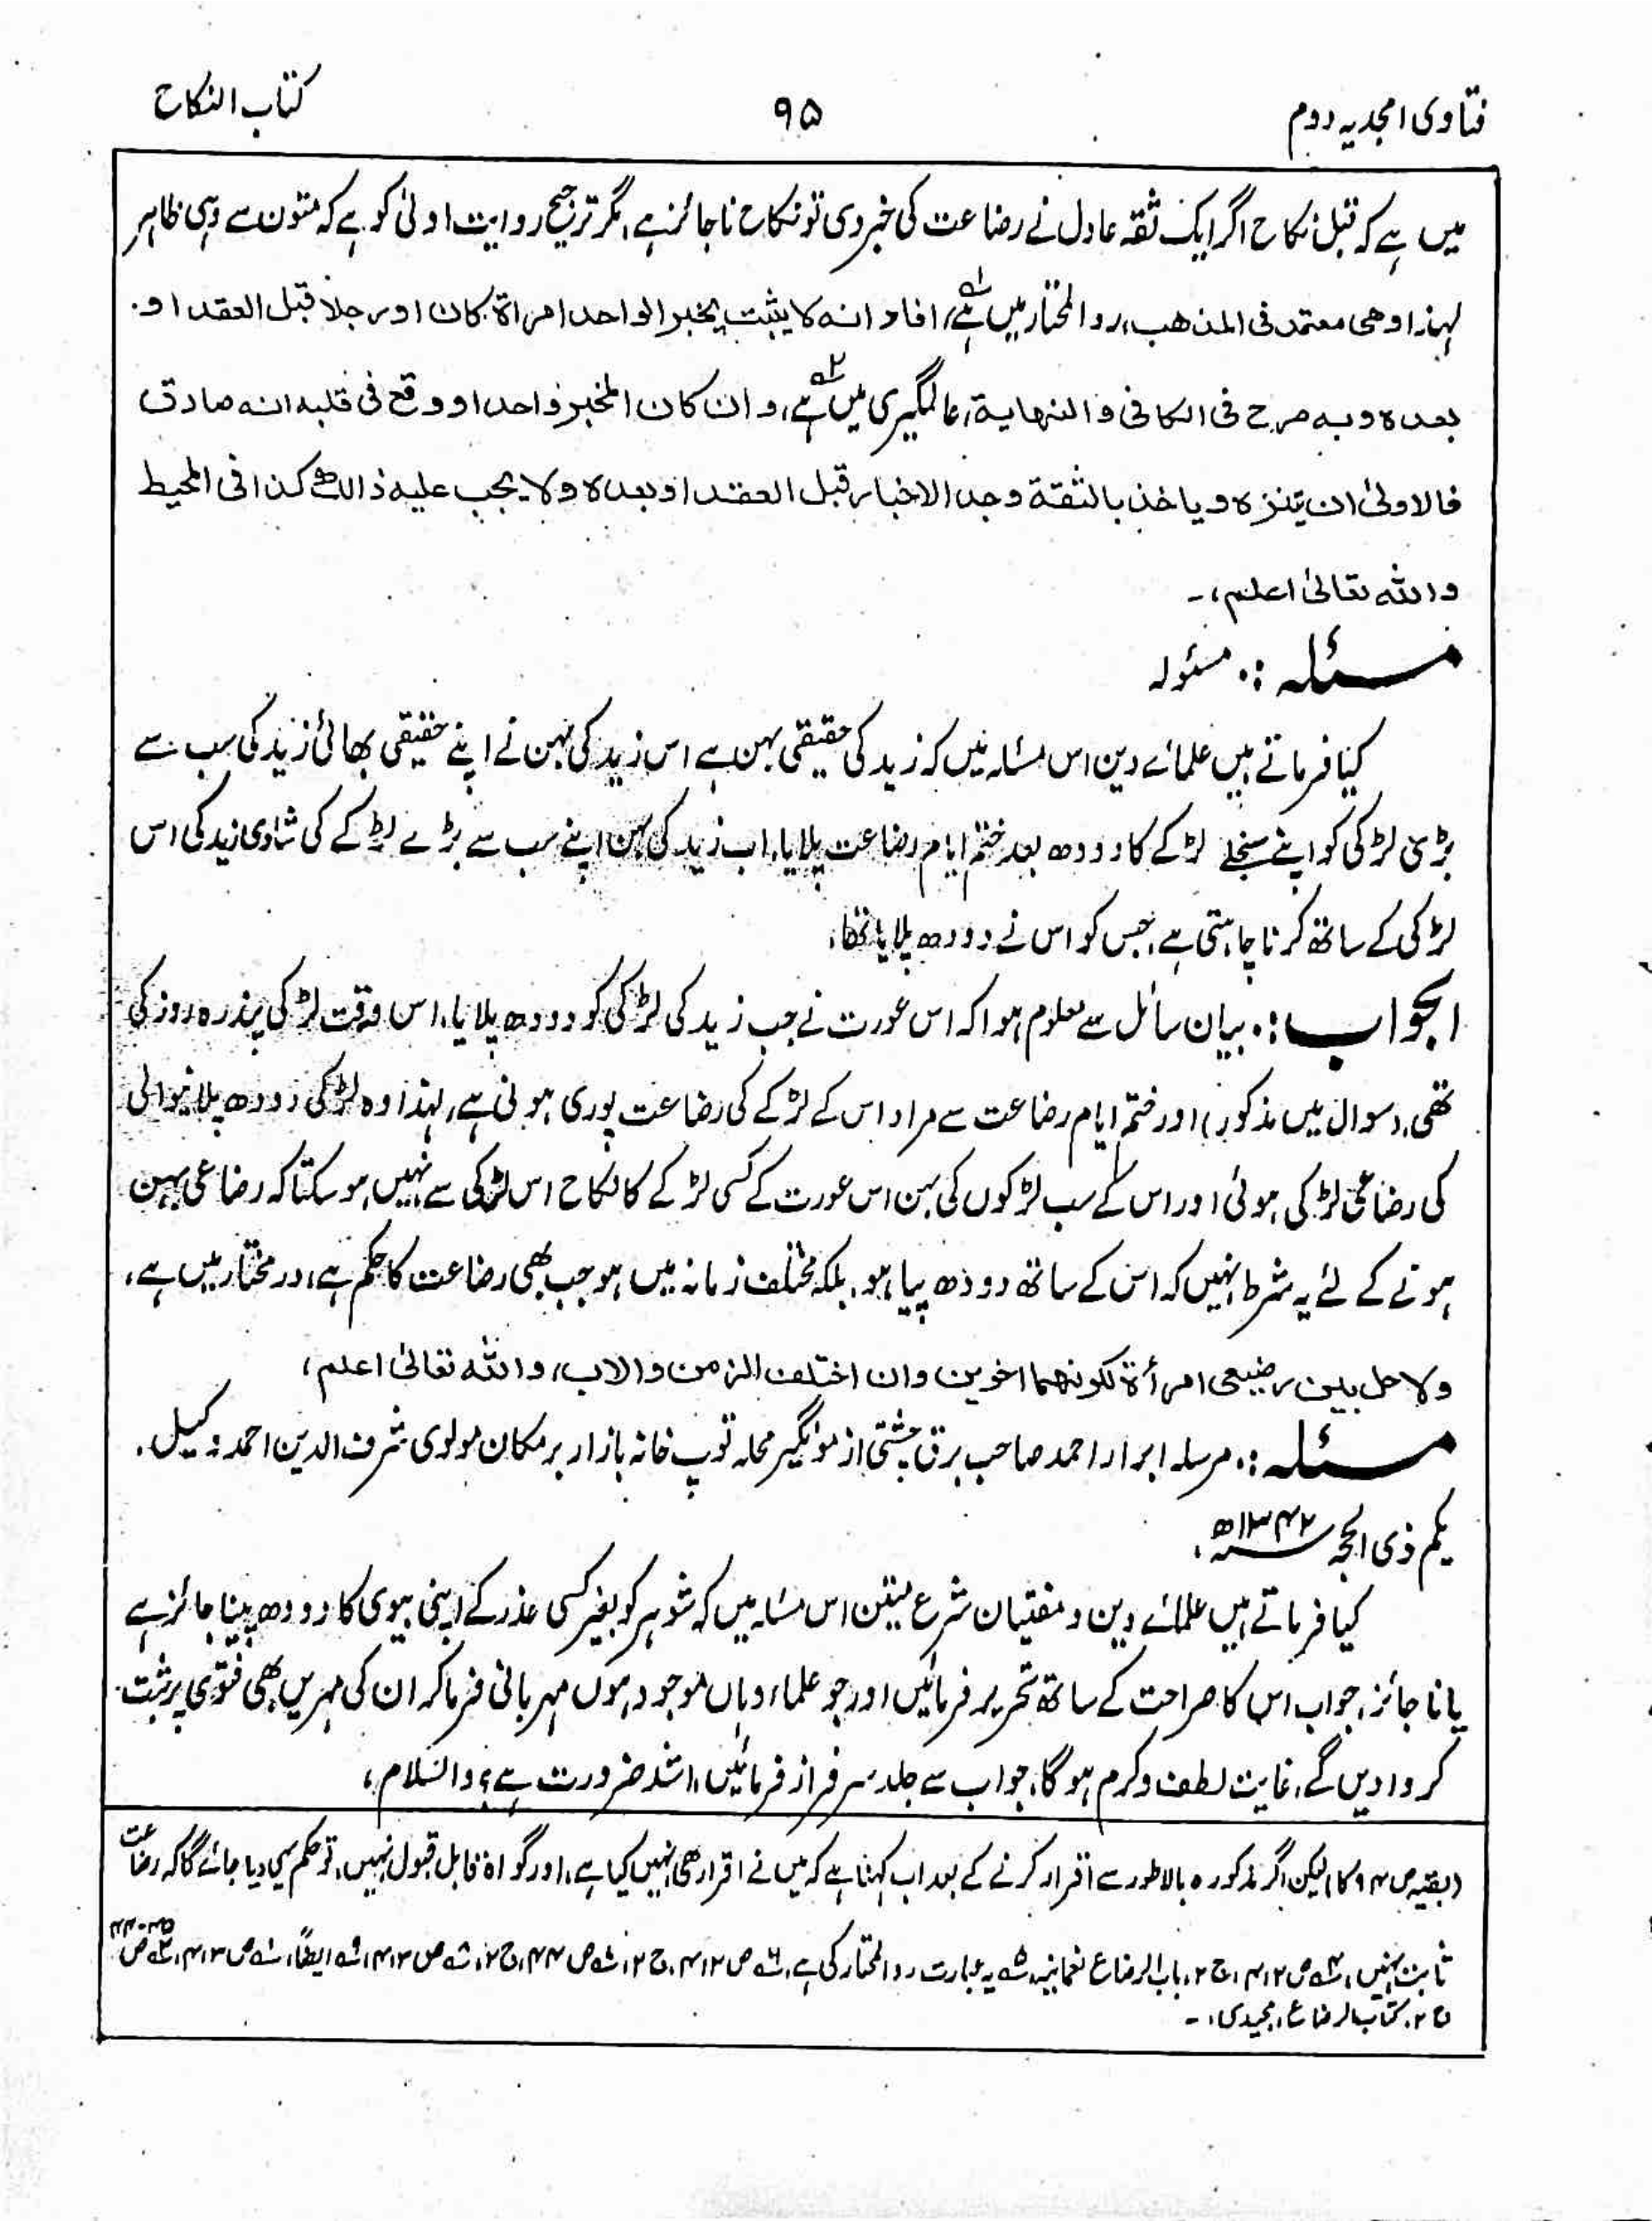 فتاوی امجدیہ دوم
۹۵
کتاب النکاح
میں ہے کہ قبل نکاح اگر ایک ثقہ عادل نے رضاعت کی خبر دی تو نکاح ناجائز ہے، مگر ترجیح روایت اولیٰ کو ہے کہ متون سے وہی ظاہر
لہٰذا وھی معتمد فی المذھب، رد المحتار میں ہے، افاد انہ لا یثبت بخبر الواحد امرأۃ کان او رجلا قبل العقد او
بعدہ و بہ صرح فی الکافی و النھایۃ، عالمگیری میں ہے، و ان کان المخبر واحدا و وقع فی قلبہ انہ صادق
فالاولیٰ ان یتنزہ و یاخذ بالثقۃ وجد الاخبار قبل العقد او بعدہ ولا یجب علیہ ذالک کذا فی المحیط
واللہ تعالیٰ اعلم،۔
مسئلہ :۔ مسئولہ
کیا فرماتے ہیں علمائے دین اس مسئلہ میں کہ زید کی حقیقی بہن ہے اس زید کی بہن نے اپنے حقیقی بھائی زید کی سب سے
بڑی لڑکی کو اپنے سنجلے لڑکے کا دودھ بعد ختم ایام رضاعت پلایا، اب زید کی بہن اپنے سب سے بڑے لڑکے کی شادی زید کی اس
لڑکی کے ساتھ کرنا چاہتی ہے، جس کو اس نے دودھ پلایا تھا،
الجواب :۔ بیان سائل سے معلوم ہوا کہ اس عورت نے جب زید کی لڑکی کو دودھ پلایا، اس وقت لڑکی پندرہ روز کی
تھی، (سوال میں مذکور) اور ختم ایام رضاعت سے مراد اس کے لڑکے کی رضاعت پوری ہونی ہے، لہٰذا وہ لڑکی دودھ پلانیوالی
کی رضاعی لڑکی ہوئی اور اس کے سب لڑکوں کی بہن اس عورت کے کسی لڑکے کا نکاح اس لڑکی سے نہیں ہو سکتا کہ رضاعی بہن
ہونے کے لئے یہ شرط نہیں کہ اس کے ساتھ دودھ پیا ہو، بلکہ مختلف زمانہ میں ہو جب بھی رضاعت کا حکم ہے، در مختار میں ہے،
ولا حل بین رضیعی امرأۃ لکونھما اخوین وان اختلف الزمن والاب، واللہ تعالیٰ اعلم،
مسئلہ :۔ مرسلہ ابرار احمد صاحب برق چشتی از مونگیر محلہ توپ خانہ بازار بر مکان مولوی شرف الدین احمد وکیل،
یکم ذی الحجہ ۱۳۴۲ھ،
کیا فرماتے ہیں علمائے دین و مفتیان شرع متین اس مسئلہ میں کہ شوہر کو بغیر کسی عذر کے اپنی بیوی کا دودھ پینا جائز ہے
یا ناجائز، جواب اس کا صراحت کے ساتھ تحریر فرمائیں اور جو علماء وہاں موجود ہوں مہربانی فرما کر ان کی مہریں بھی فتوی پر ثبت
کروادیں گے، غایت لطف و کرم ہوگا، جواب سے جلد سرفراز فرمائیں، اشد ضرورت ہے؟ والسلام،
(بقیہ ص ۹۴ کا) لیکن اگر مذکورہ بالا طور سے اقرار کرنے کے بعد اب کہتا ہے کہ میں نے اقرار ہی نہیں کیا ہے، اور گواہ قابل قبول نہیں، تو حکم یہی دیا جائے گا کہ رضاعت
ثابت نہیں، ص ۴۱۲، ج ۲، باب الرضاع نعمانیہ، یہ عبارت رد المحتار کی ہے، ص ۴۱۲، ج ۲، ص ۴۴، ج ۲، ص ۴۱۳، ایضًا، ص ۴۱۳،
ج ۲، کتاب الرضاع، مجیدی،۔